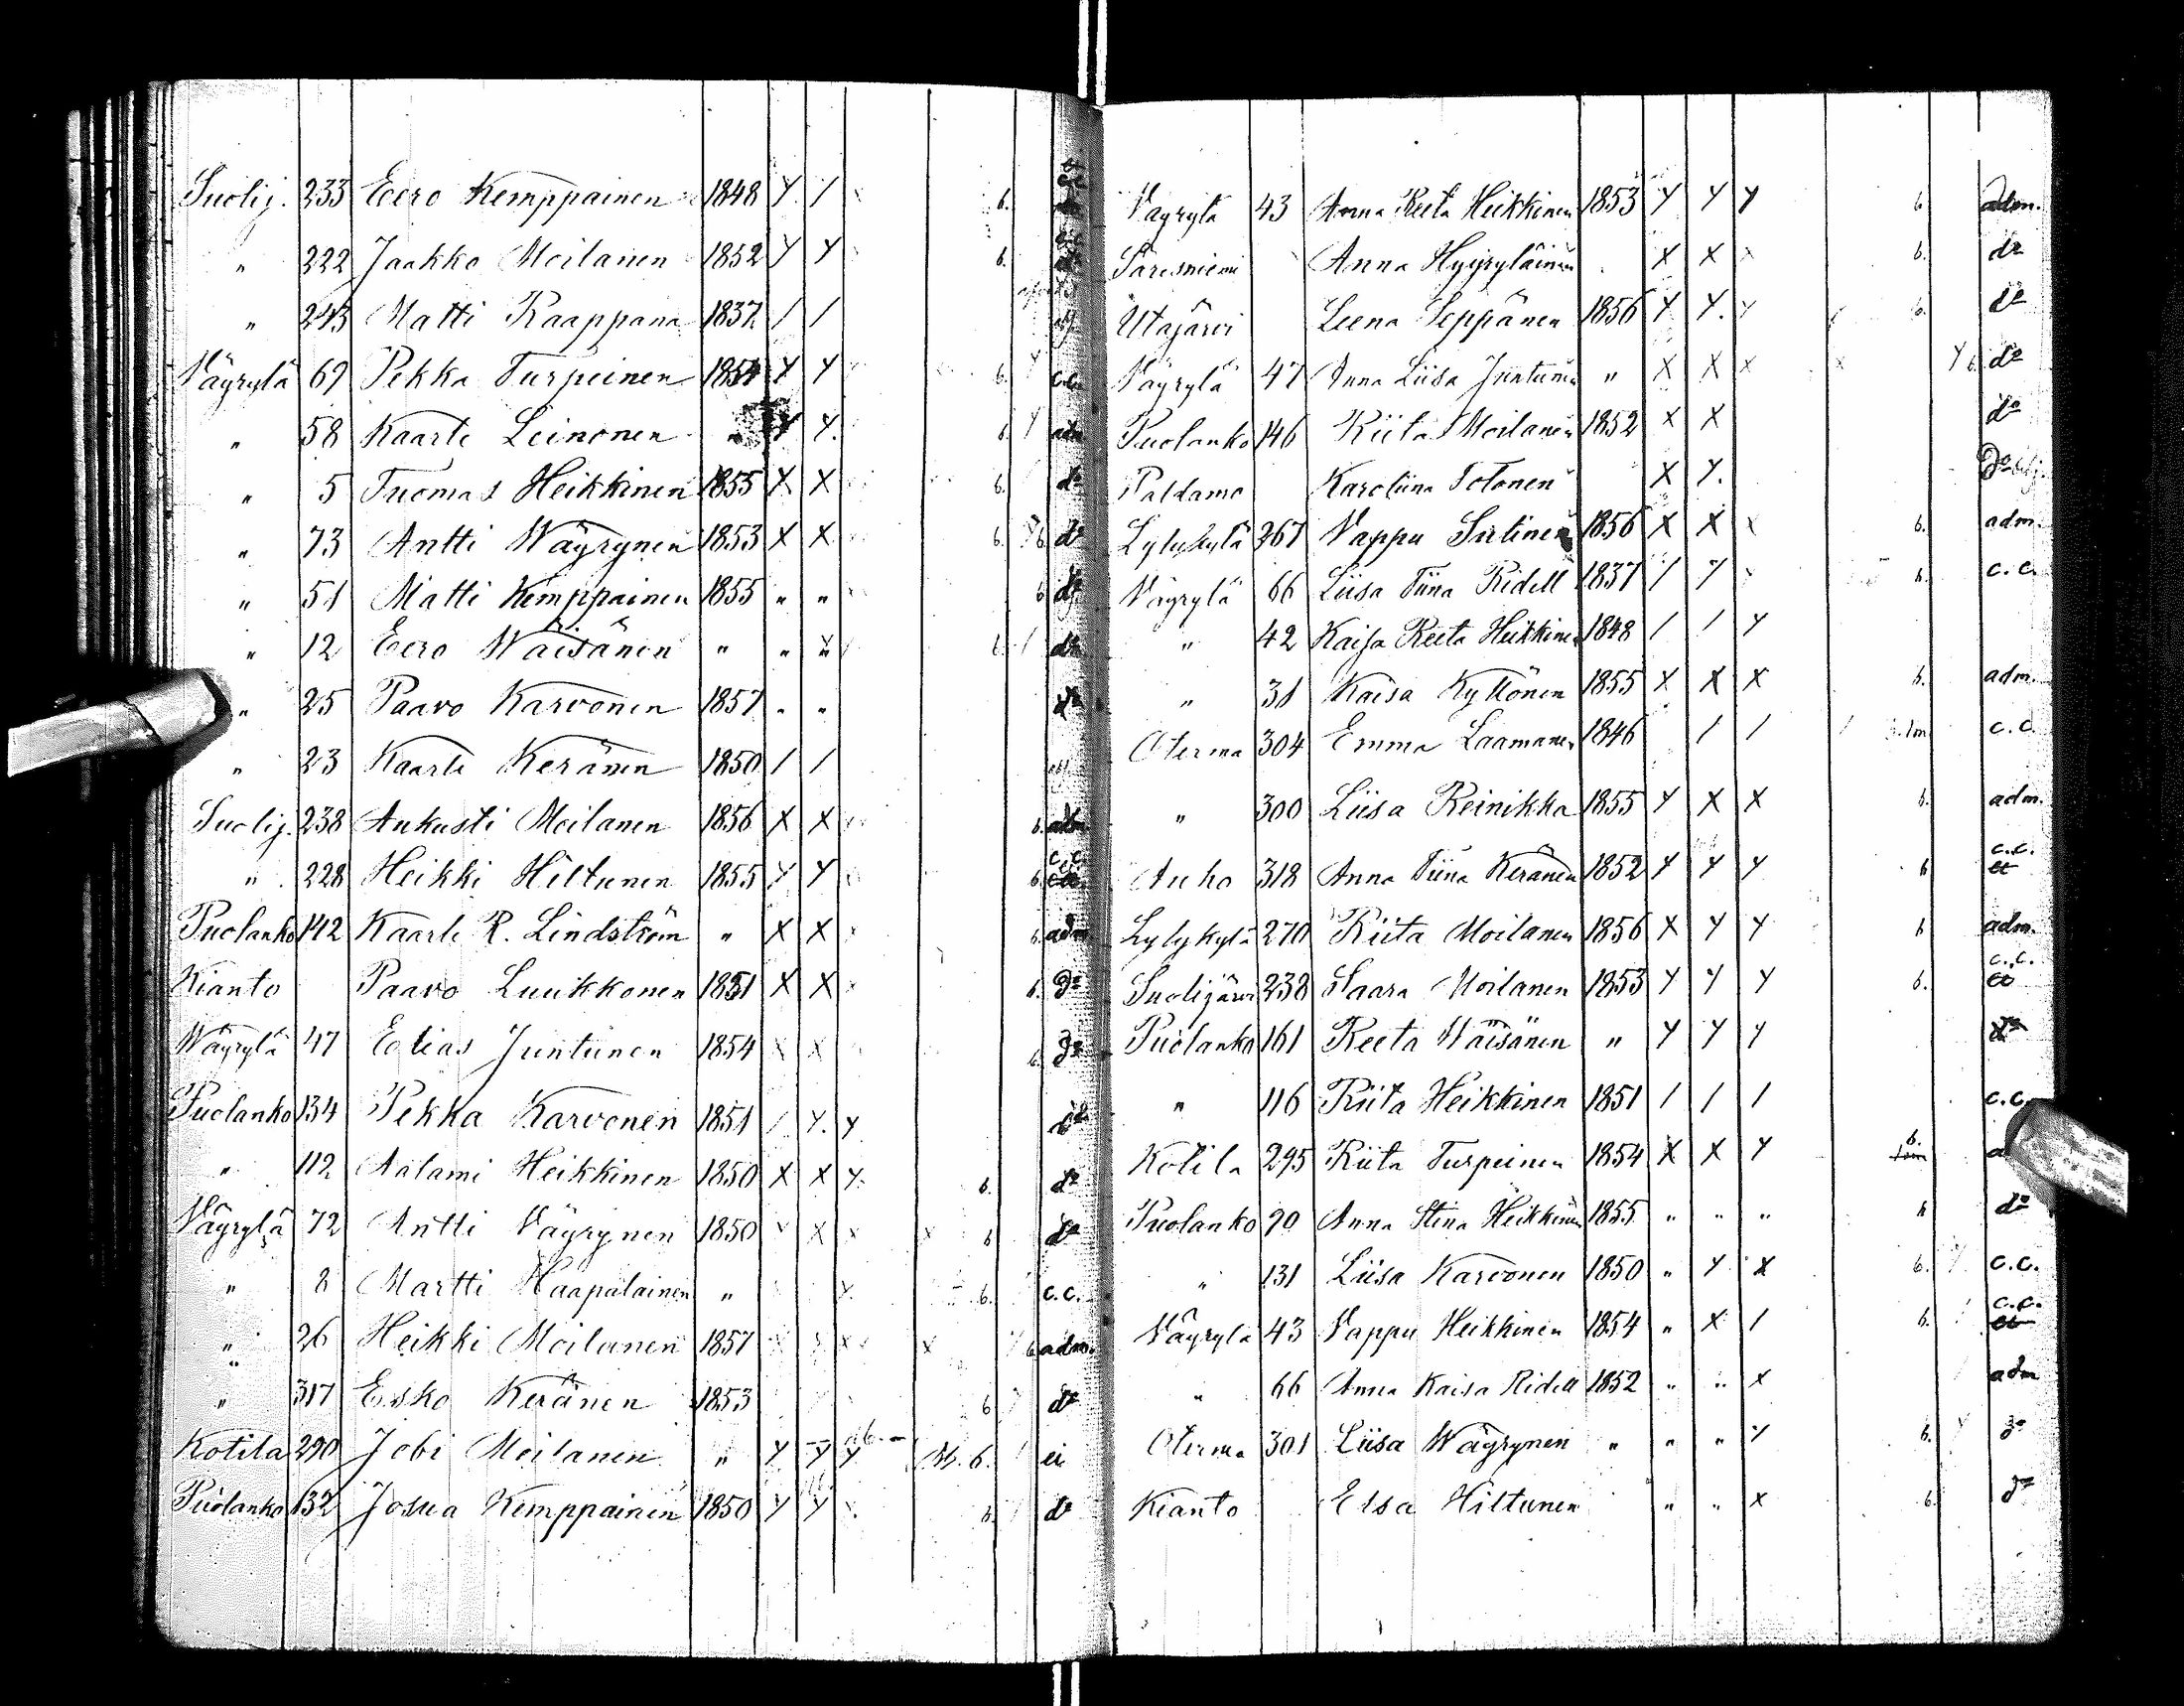 Suolij. 233 Eero Kemppainen 1848 Y / 6.
" 222 Jaakko Moilanen 1852 Y Y 6.
" 243 Matti Kaappana 1837 / /
Väyrylä 69 Pekka Turpeinen 1854 Y Y 6. Y c.c.
" 58 Kaarle Leinonen " Y Y. 6. Y adm
" 5 Tuomas Heikkinen 1855 X X 6. do
" 73 Antti Wäyrynen 1853 X X 6. do
" 51 Matti Kemppainen 1855 " " 6 do
" 12 Eero Wäisänen " " " 6. / do
" 25 Paavo Karvonen 1857 " " do
" 23 Kaarle Keränen 1850 / /
Suolij. 238 Aukusti Moilanen 1856 X X 6. adm.
" 228 Heikki Hiltunen 1855 Y Y 6. c.c.
Puolanko 142 Kaarle R. Lindström " X X 6. adm
Kianto Paavo Luukkonen 1851 X X 6. do
Wäyrylä 47 Eelias Juntunen 1854 X X 6. do
Puolanko 134 Pekka Karvonen 1851 / Y. Y do
" 112 Aatami Heikkinen 1850 X X Y. 6. do
Väyrylä 72 Antti Väyrynen 1850 X X X X 6 do
" 8 Martti Haapalainen " Y. 6. c.c.
" 26 Heikki Moilanen 1857 X X X X 6 adm.
" 317 Esko Keränen 1853 6 do
Kotila 290 Jobi Moilanen " Y Y Y 6. ei
Puolanko 132 Josua Kemppainen 1850 Y Y 6. do
Väyrylä 43 Anna Reeta Heikkinen 1853 Y Y Y 6 adm.
Säresniemi Anna Hyyryläinen X X X 6. do
Utajärvi Leena Seppänen 1856 Y Y. Y 6. do
Väyrylä 47 Anna Liisa Juntunen " X X X X Y 6. do
Puolanko 146 Riita Moilanen 1852 X X do
Paldamo Karoliina Tolonen X Y. do
Lylykylä 267 Vappu Sirlinen 1856 X X X 6. adm.
Väyrylä 66 Liisa Tiina Ridell 1837 / Y 6. c.c.
" 42 Kaisa Reeta Heikkinen 1848 / / Y
" 31 Kaisa Kyllönen 1855 X X X 6. adm.
Oterma 304 Emma Laamanen 1846 / / / c.c.
" 300 Liisa Reinikka 1855 Y X X 6. adm.
Auho 318 Anna Tiina Keränen 1852 Y Y Y 6 c.c.
Lylykylä 270 Riita Moilanen 1856 X Y Y 6 adm.
Suolijärvi 238 Saara Moilanen 1853 Y Y Y 6. c.c.
Puolanko 161 Reeta Wäisänen " Y Y Y do
" 116 Riita Heikkinen 1851 / / / c.c.
Kotila 295 Riita Turpeinen 1854 X X Y 6.
Puolanko 90 Anna Stina Heikkinen 1855 " " " 6 do
" 131 Liisa Karvonen 1850 " Y X 6. Y c.c.
Väyrylä 43 Vappu Heikkinen 1854 " X / 6. c.c.
" 66 Anna Kaisa Ridell 1852 " " X adm
Oterma 301 Liisa Wäyrynen " " " Y 6. Y do
Kianto Elsa Hiltunen " " X 6. do